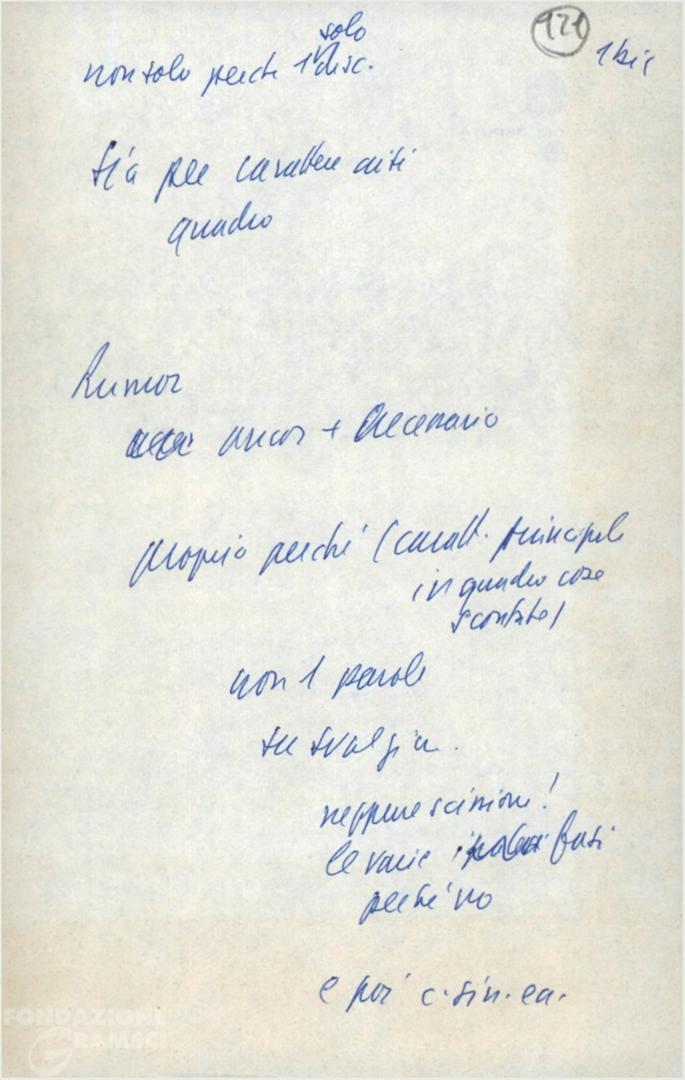 121
1 bis
solo
non solo perché 1° disc.
Già per carattere
quadro
Rumor
ancor +
proprio perché (caratt. principale
in quadro cose
scontate)
non 1 parola
su
neppure scissione!
le varie fasi
perché no
e poi c. sin. ea.
FONDAZIONE
GRAMSCI